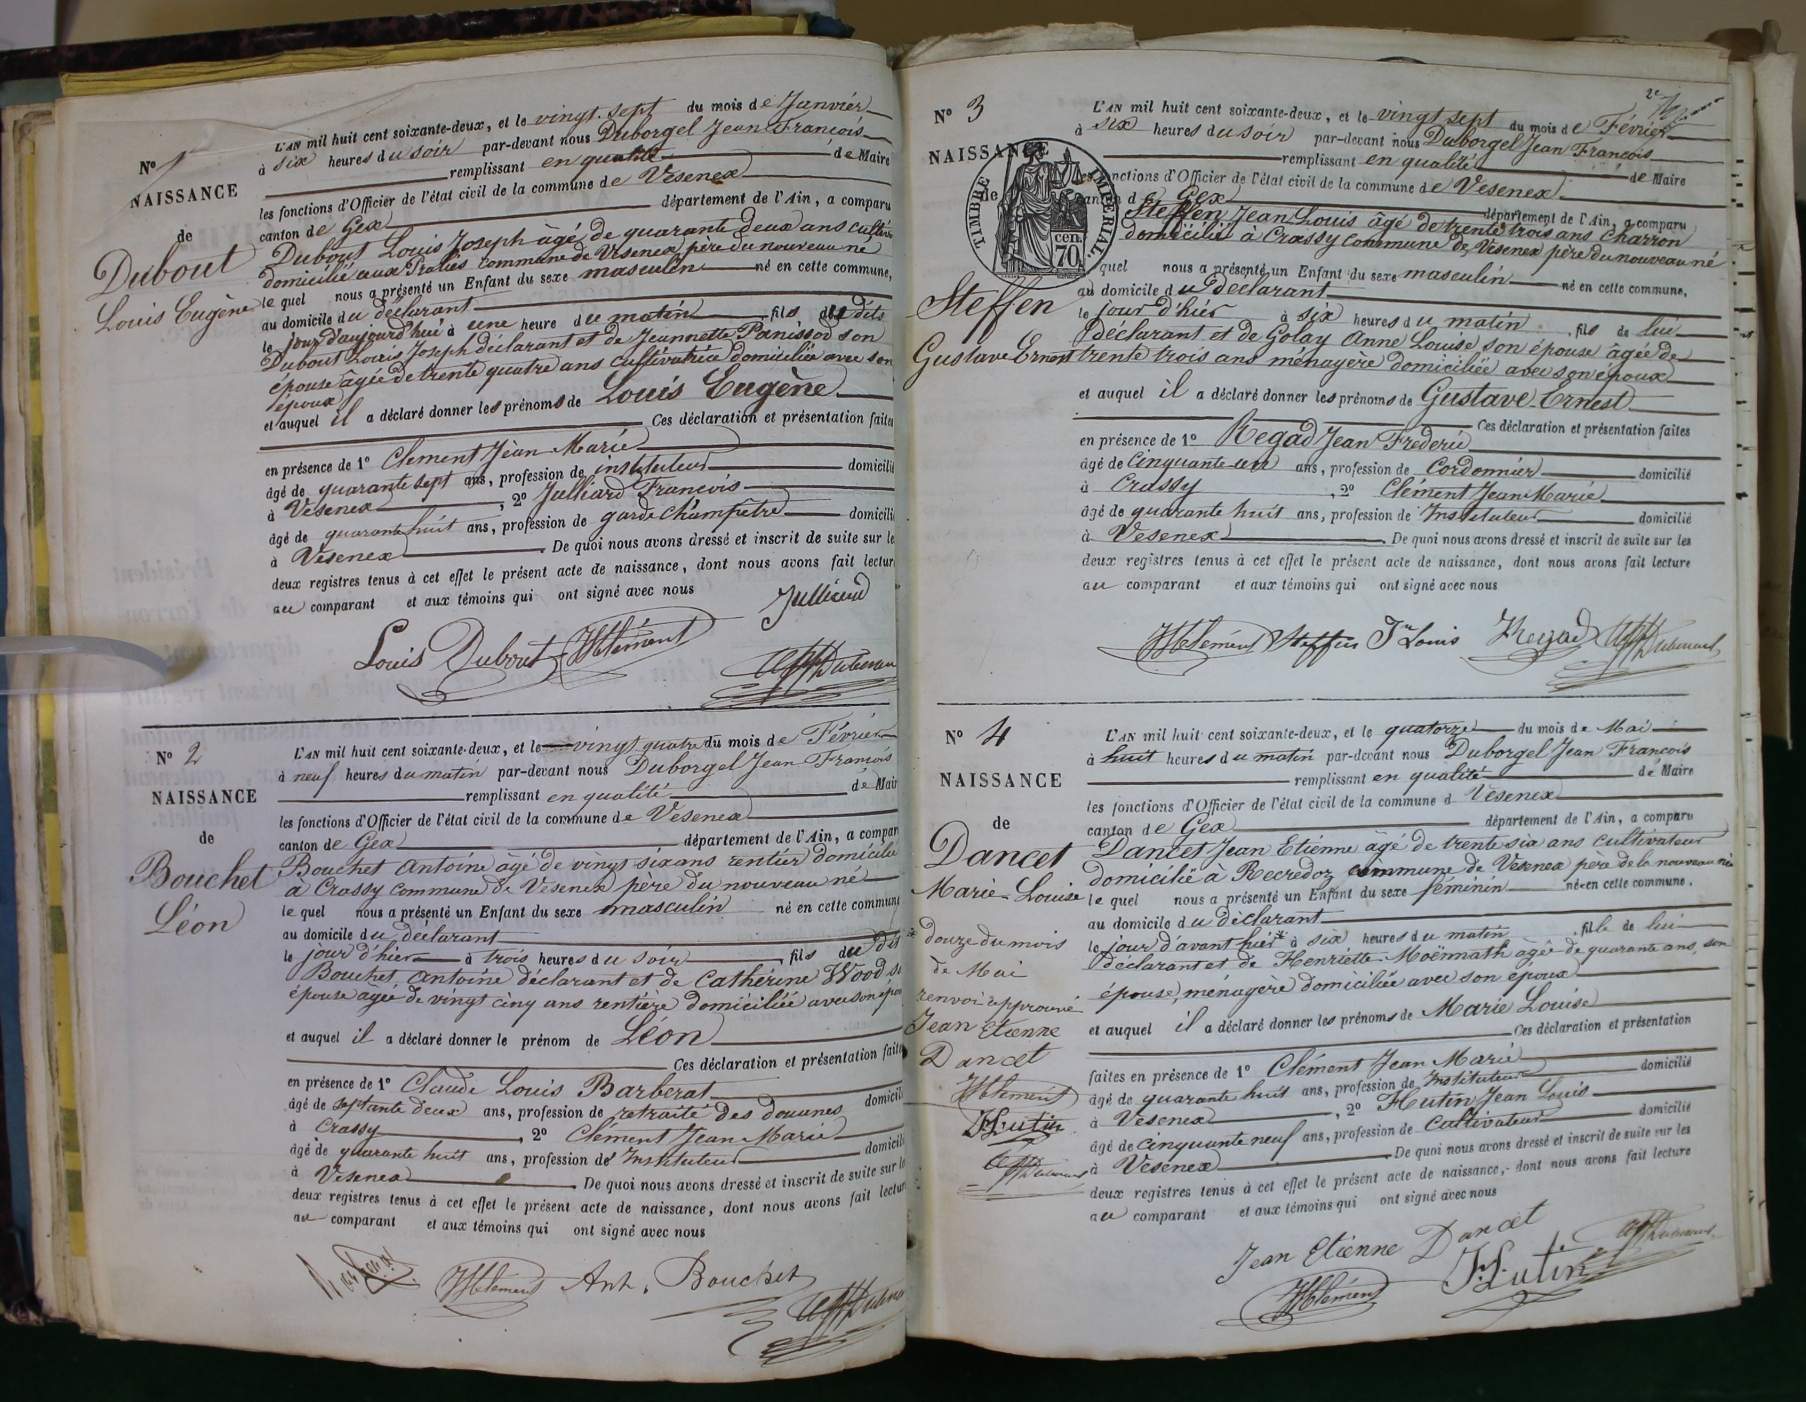 No 1
NAISSANCE
de
Dubout
Louis Eugène
L'AN mil huit cent soixante-deux, et le vingt-sept du mois de Janvier
à six heures du soir par-devant nous Duborgel Jean François
remplissant en qualité de Maire
les fonctions d'Officier de l'état civil de la commune de Vesenex
canton de Gex département de l'Ain, a comparu
Dubout Louis Joseph âgé de quarante deux ans
domicilié aux commune de Vesenex père du nouveau né
le quel nous a présenté un Enfant du sexe masculin né en cette commune,
au domicile du déclarant
le jour d'aujourd'hui à une heure du matin, fils du dits
Dubout Louis Joseph déclarant et de Jeannette Panissod son
épouse âgée de trente quatre ans cultivatrice domiciliée avec son
époux
et auquel il a déclaré donner les prénoms de Louis Eugène
Ces déclaration et présentation faites
en présence de 1° Clement Jean Marie
âgé de quarante sept ans, profession de instituteur domicilié
à Vesenex, 2° Julliard François
âgé de quarante huit ans, profession de garde Champêtre domicilié
à Vesenex. De quoi nous avons dressé et inscrit de suite sur le
deux registres tenus à cet effet le présent acte de naissance, dont nous avons fait lectur
au comparant et aux témoins qui ont signé avec nous
Julliard
Louis Dubout JMClément
No 2
NAISSANCE
de
Bouchet
Léon
L'AN mil huit cent soixante-deux, et le vingt quatre du mois de Février
à neuf heures du matin par-devant nous Duborgel Jean François
remplissant en qualité de Mair
les fonctions d'Officier de l'état civil de la commune de Vesenex
canton de Gex département de l'Ain, a compar
Bouchet Antoine âgé de vingt six ans rentier domicilié
à Crassy commune de Vesenex père du nouveau né
le quel nous a présenté un Enfant du sexe masculin né en cette commune
au domicile du déclarant
le jour d'hier à trois heures du soir, fils du dit
Bouchet Antoine déclarant et de Catherine Wood
épouse âgée de vingt cinq ans rentière domiciliée avec son
et auquel il a déclaré donner le prénom de Léon
Ces déclaration et présentation faites
en présence de 1° Claude Louis Barberat
âgé de septante deux ans, profession de retraité des douanes domicili
à Crassy, 2° Clément Jean Marie
âgé de quarante huit ans, profession de Instituteur domicili
à Vesenex. De quoi nous avons dressé et inscrit de suite sur
deux registres tenus à cet effet le présent acte de naissance, dont nous avons fait lectur
au comparant et aux témoins qui ont signé avec nous
JMClément Ant. Bouchet
No 3
NAISSANCE
de
Steffen
Gustave Ernest
TIMBRE IMPÉRIAL
70 cen.
L'AN mil huit cent soixante-deux, et le vingt sept du mois de Février
à six heures du soir par-devant nous Duborgel Jean François
remplissant en qualité de Maire
les fonctions d'Officier de l'état civil de la commune de Vesenex
canton de Gex département de l'Ain, a comparu
Steffen Jean Louis âgé de trente trois ans Charron
domicilié à Crassy commune de Vesenex père du nouveau né
quel nous a présenté un Enfant du sexe masculin né en cette commune,
au domicile du déclarant
le jour d'hier à six heures du matin, fils de lui
déclarant et de Golay Anne Louise son épouse âgée de
trente trois ans ménagère domiciliée avec son époux
et auquel il a déclaré donner les prénoms de Gustave-Ernest
Ces déclaration et présentation faites
en présence de 1° Regad Jean Frederic
âgé de cinquante-un ans, profession de Cordonnier domicilié
à Crassy, 2° Clément Jean Marie
âgé de quarante huit ans, profession de Instituteur domicilié
à Vesenex. De quoi nous avons dressé et inscrit de suite sur les
deux registres tenus à cet effet le présent acte de naissance, dont nous avons fait lecture
au comparant et aux témoins qui ont signé avec nous
JMClément Steffen Jn Louis Regad
No 4
NAISSANCE
de
Dancet
Marie-Louise
douze du mois
de Mai
renvoi approuvé
Jean Etienne
Dancet
JMClément
Hutin
L'AN mil huit cent soixante-deux, et le quatorze du mois de Mai
à huit heures du matin par-devant nous Duborgel Jean François
remplissant en qualité de Maire
les fonctions d'Officier de l'état civil de la commune d Vesenex
canton de Gex département de l'Ain, a comparu
Dancet Jean Etienne âgé de trente six ans cultivateur
domicilié à Recredoz commune de Vesenex père de la nouveau née
le quel nous a présenté un Enfant du sexe féminin née en cette commune.
au domicile du déclarant
le jour d'avant hier à six heures du matin, fille de lui
déclarant et de Henriette Moënnath âgée de quarante ans, son
épouse, ménagère domiciliée avec son époux
et auquel il a déclaré donner les prénoms de Marie Louise
Ces déclaration et présentation
faites en présence de 1° Clément Jean Marie
âgé de quarante huit ans, profession de Instituteur domicilié
à Vesenex, 2° Hutin Jean Louis
âgé de cinquante neuf ans, profession de Cultivateur domicilié
à Vesenex. De quoi nous avons dressé et inscrit de suite sur les
deux registres tenus à cet effet le présent acte de naissance, dont nous avons fait lecture
au comparant et aux témoins qui ont signé avec nous
Jean Etienne Dancet
JMClément Hutin